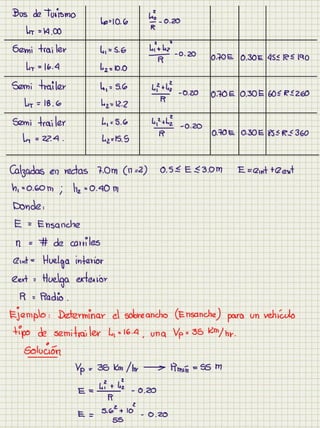 Bus de Turismo
LT = 14.00
Lo=10.6
Lo²/R - 0.20
Semi trailer
LT = 16.4
L1 = 5.6
L2 = 10.0
L1²+L2²/R - 0.20
0.70E
0.30E
45≤ R≤ 190
Semi trailer
LT = 18.6
L1 = 5.6
L2 = 12.2
L1²+L2²/R - 0.20
0.70E
0.30E
60≤ R≤260
Semi trailer
LT = 22.4.
L1 = 5.6
L2=15.5
L1²+L2²/R - 0.20
0.70E
0.30E
85≤R≤360
Calzadas en rectas 7.0m (n=2) 0.5≤ E ≤3.0m E=eint+eext
h1=0.60m ; h2=0.40m
Donde:
E = Ensanche
n = # de carriles
eint= Huelga interior
eext = Huelga exterior
R = Radio.
Ejemplo: Determinar el sobreancho (Ensanche) para un vehículo
tipo de semitrailer L1=16.4, una Vp=35 km/hr.
Solución
Vp = 35 km/hr → Rmín = 55 m
E = L1² + L2²/R - 0.20
E = 5.6² + 10²/55 - 0.20